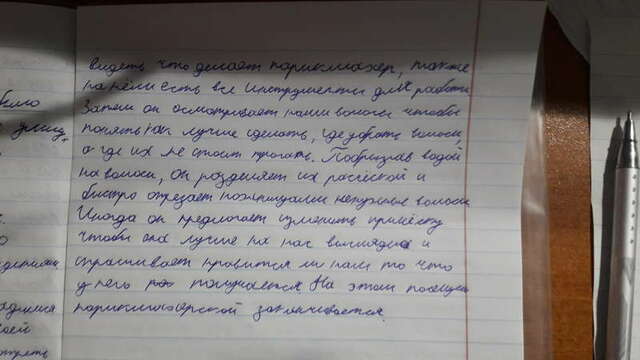 видеть что делает парикмахер, также
на нём есть все инструменты для работы
Затем он осматривает наши волосы чтобы
понять как лучше сделать, где убрать волосы,
а где их не стоит трогать. Побризгав водой
на волосы, он розделяет их расчёской и
быстро отрезает ножницами ненужные волосы
Иногда он предлогает изменить причёску
чтобы она лучше на нас выглядела и
спрашивает нравится ли нам то что
у него получается. На этом посещение
парикмахерской заканчивается.
было
реть